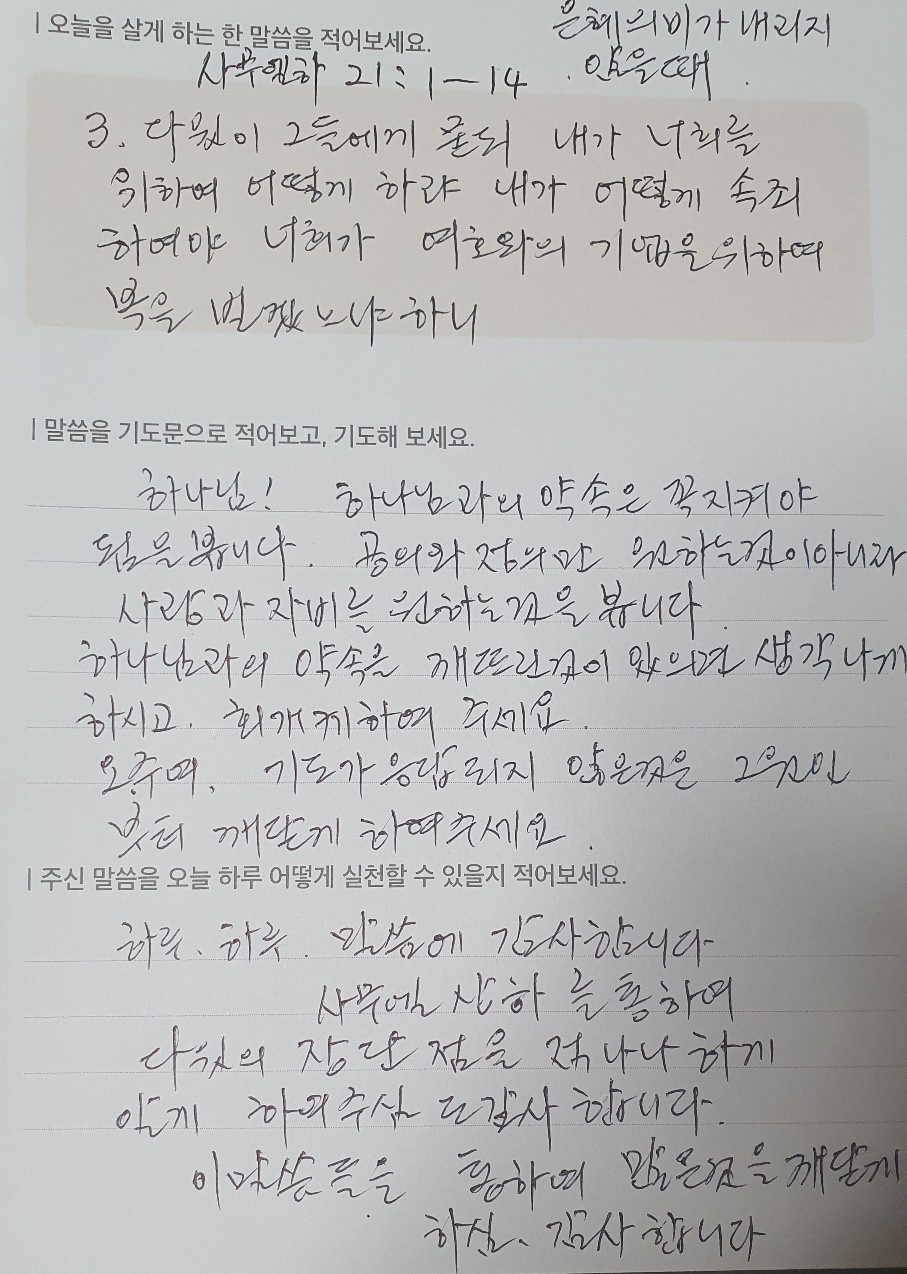 | 오늘을 살게 하는 한 말씀을 적어보세요.
은혜의비가 내리지
않을때.
사무엘하 21:1-14
3. 다윗이 그들에게 묻되 내가 너희를
위하여 어떻게 하랴 내가 어떻게 속죄
하여야 너희가 여호와의 기업을 위하여
복을 빌겠느냐 하니
| 말씀을 기도문으로 적어보고, 기도해 보세요.
하나님! 하나님과의 약속은 꼭지켜야
됨을 봅니다. 공의와 정의만 원하는것이아니라
사랑과 자비를 원하는것을 봅니다
하나님과의 약속을 깨뜨린것이 있으면 생각나게
하시고. 회개케하여 주세요.
오주여, 기도가 응답되지 않은것은 그원인
부터 깨닫게 하여주세요.
| 주신 말씀을 오늘 하루 어떻게 실천할 수 있을지 적어보세요.
하루. 하루. 말씀에 감사합니다
사무엘 상하 를 통하여
다윗의 장단점을 적나나하게
알게 하여주심 도감사 합니다.
이말씀들을 통하여 많은것을 깨닫게
하심. 감사 합니다